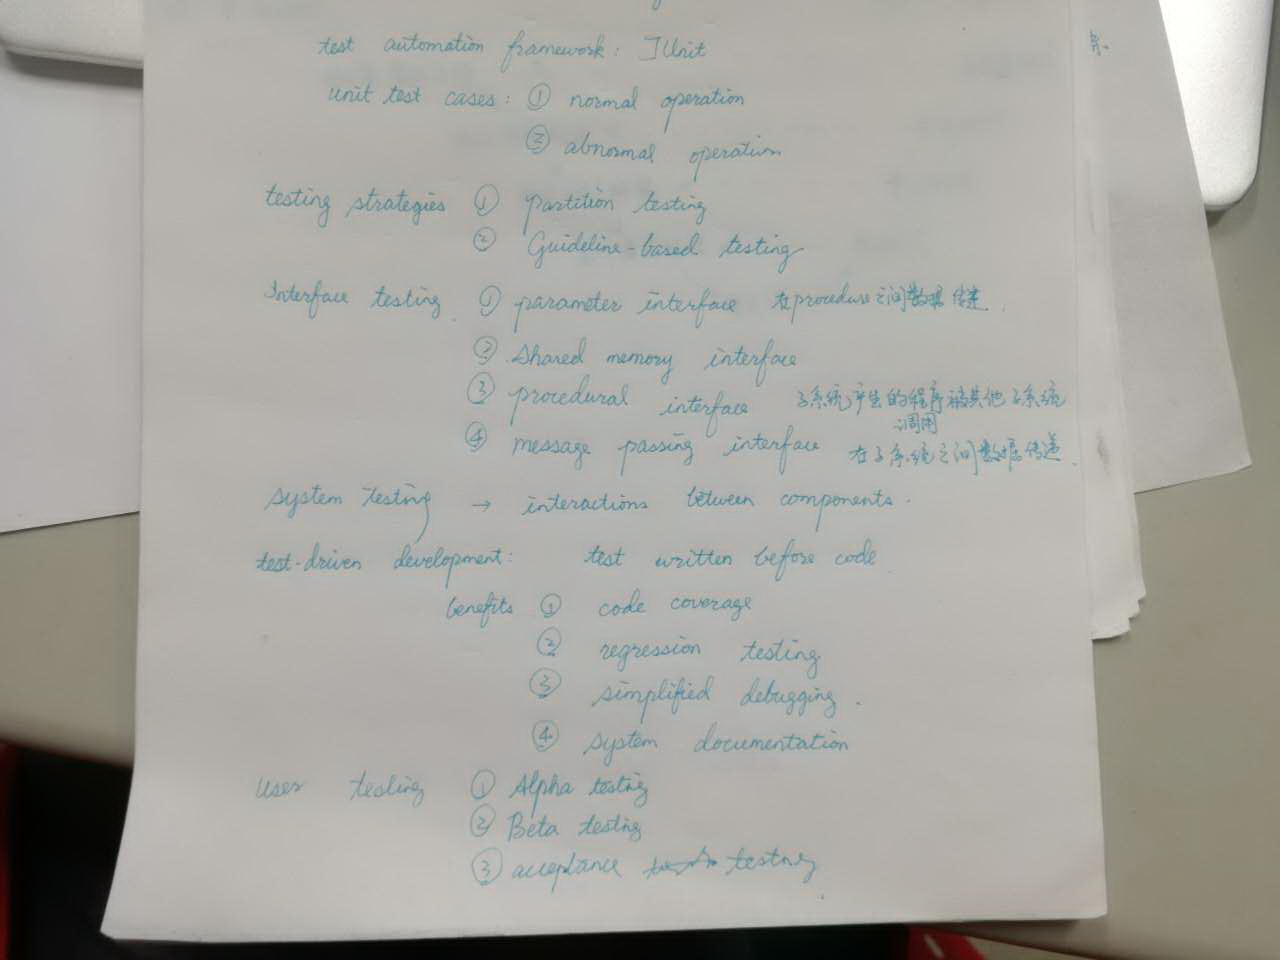 test automation framework: JUnit
unit test cases: ① normal operation
② abnormal operation
testing strategies ① partition testing
② Guideline-based testing
Interface testing ① parameter interface 在procedure之间数据传递.
② shared memory interface
③ procedural interface 子系统产生的程序被其他子系统
调用
④ message passing interface 在子系统之间数据传递.
system testing → interactions between components.
test-driven development: test written before code
benefits ① code coverage
② regression testing
③ simplified debugging.
④ system documentation
user testing ① Alpha testing
② Beta testing
③ acceptance testing